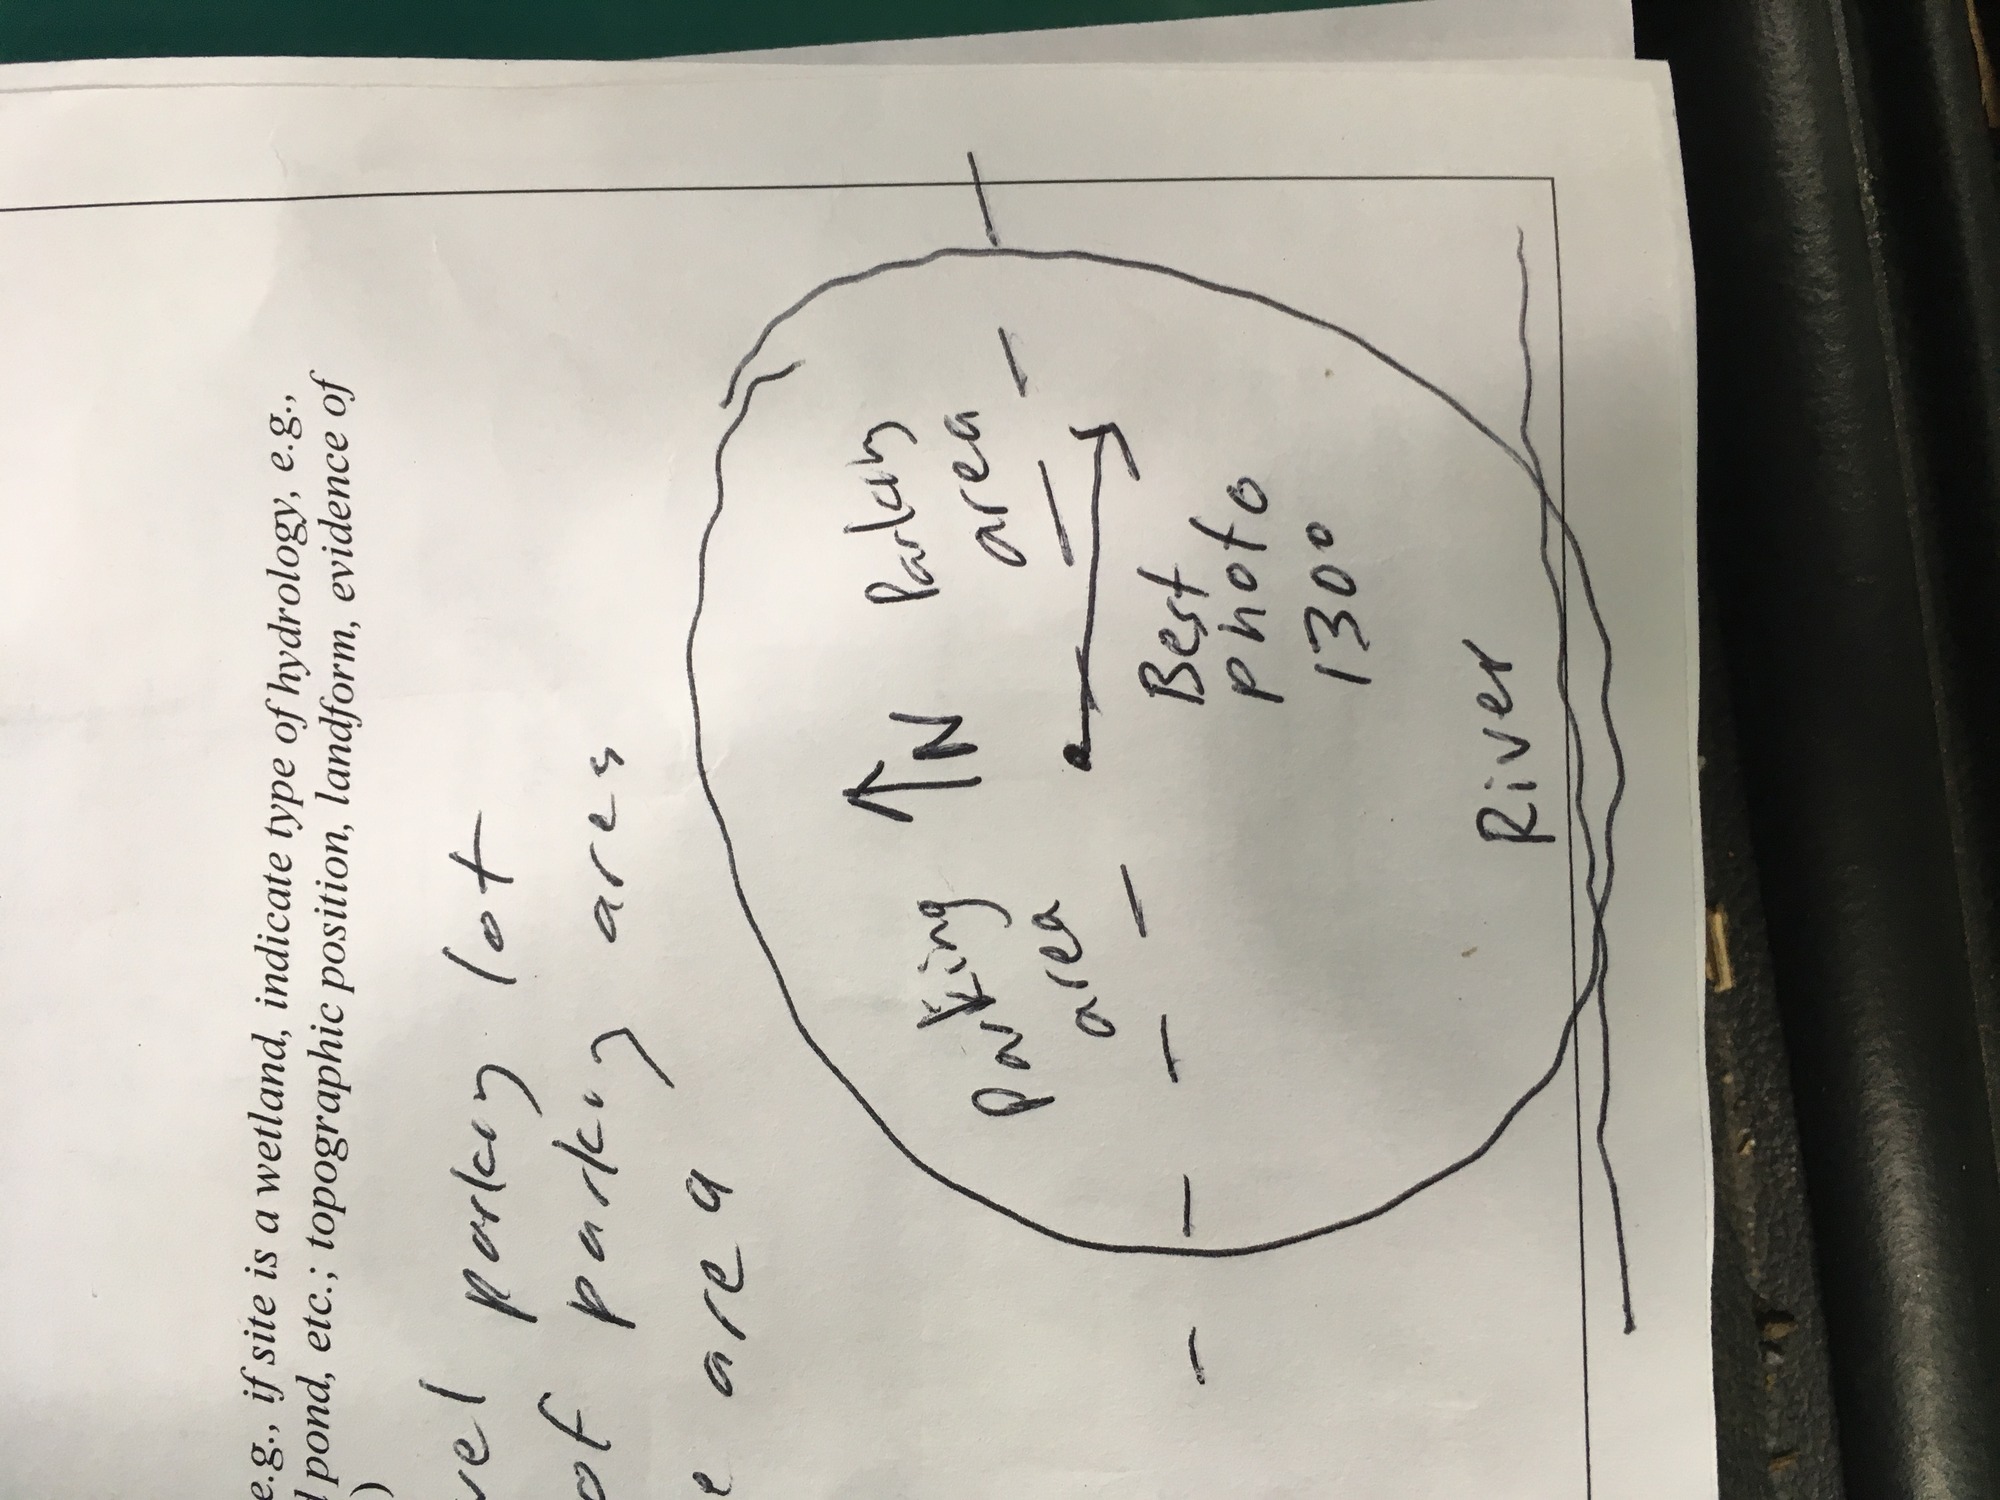 e.g., if site is a wetland, indicate type of hydrology, e.g.,
pond, etc.; topographic position, landform, evidence of
)
vel parking lot
of parking ares
e area
Parking
area
N
Parking
area
Best
photo
130°
River